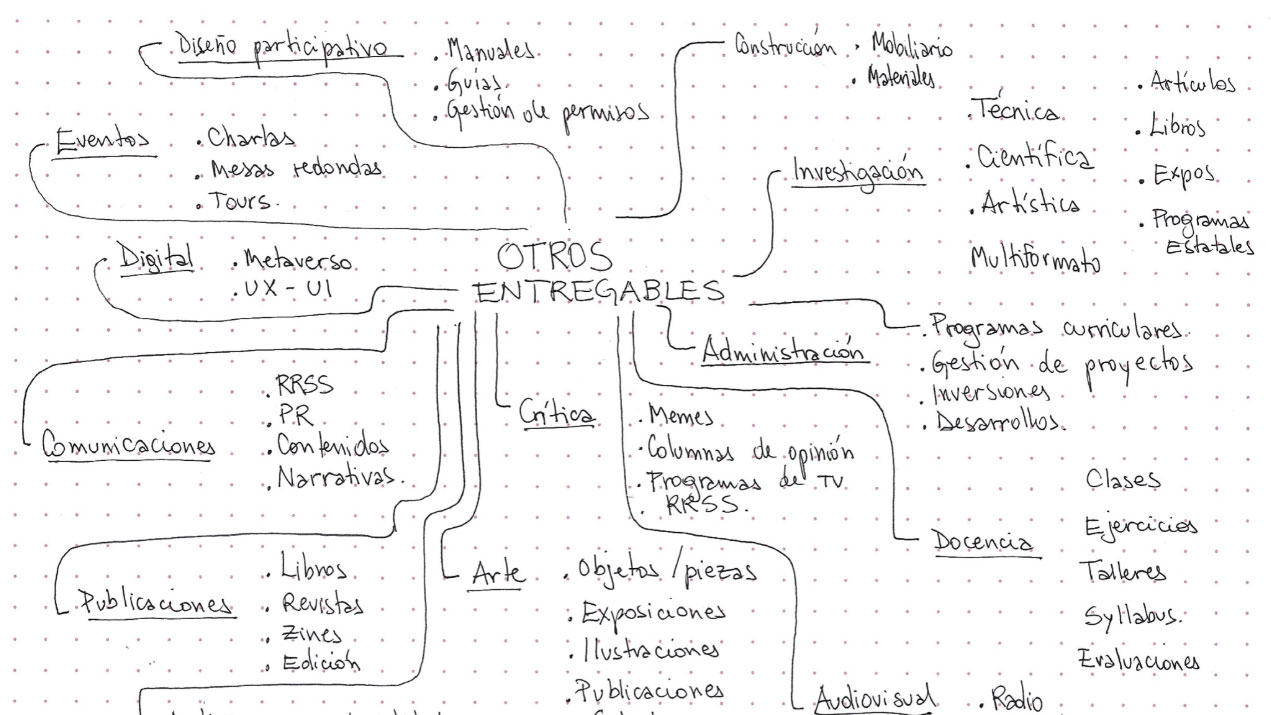 OTROS
ENTREGABLES
Diseño participativo
. Manuales
. Guías.
. Gestión de permisos
Eventos
. Charlas
. Mesas redondas
. Tours.
Digital
. Metaverso
. UX - UI
Comunicaciones
. RRSS
. PR
. Contenidos
. Narrativas.
Publicaciones
. Libros
. Revistas
. Zines
. Edición
Arte
. Objetos / piezas
. Exposiciones
. Ilustraciones
. Publicaciones
Crítica
. Memes
. Columnas de opinión
. Programas de TV
. RRSS.
Construcción
. Mobiliario
. Materiales
Investigación
. Técnica
. Científica
. Artística
Multiformato
. Artículos
. Libros
. Expos
. Programas
Estatales
Administración
. Programas curriculares.
. Gestión de proyectos
. Inversiones
. Desarrollos.
Docencia
Clases
Ejercicios
Talleres
Syllabus.
Evaluaciones
Audiovisual
. Radio